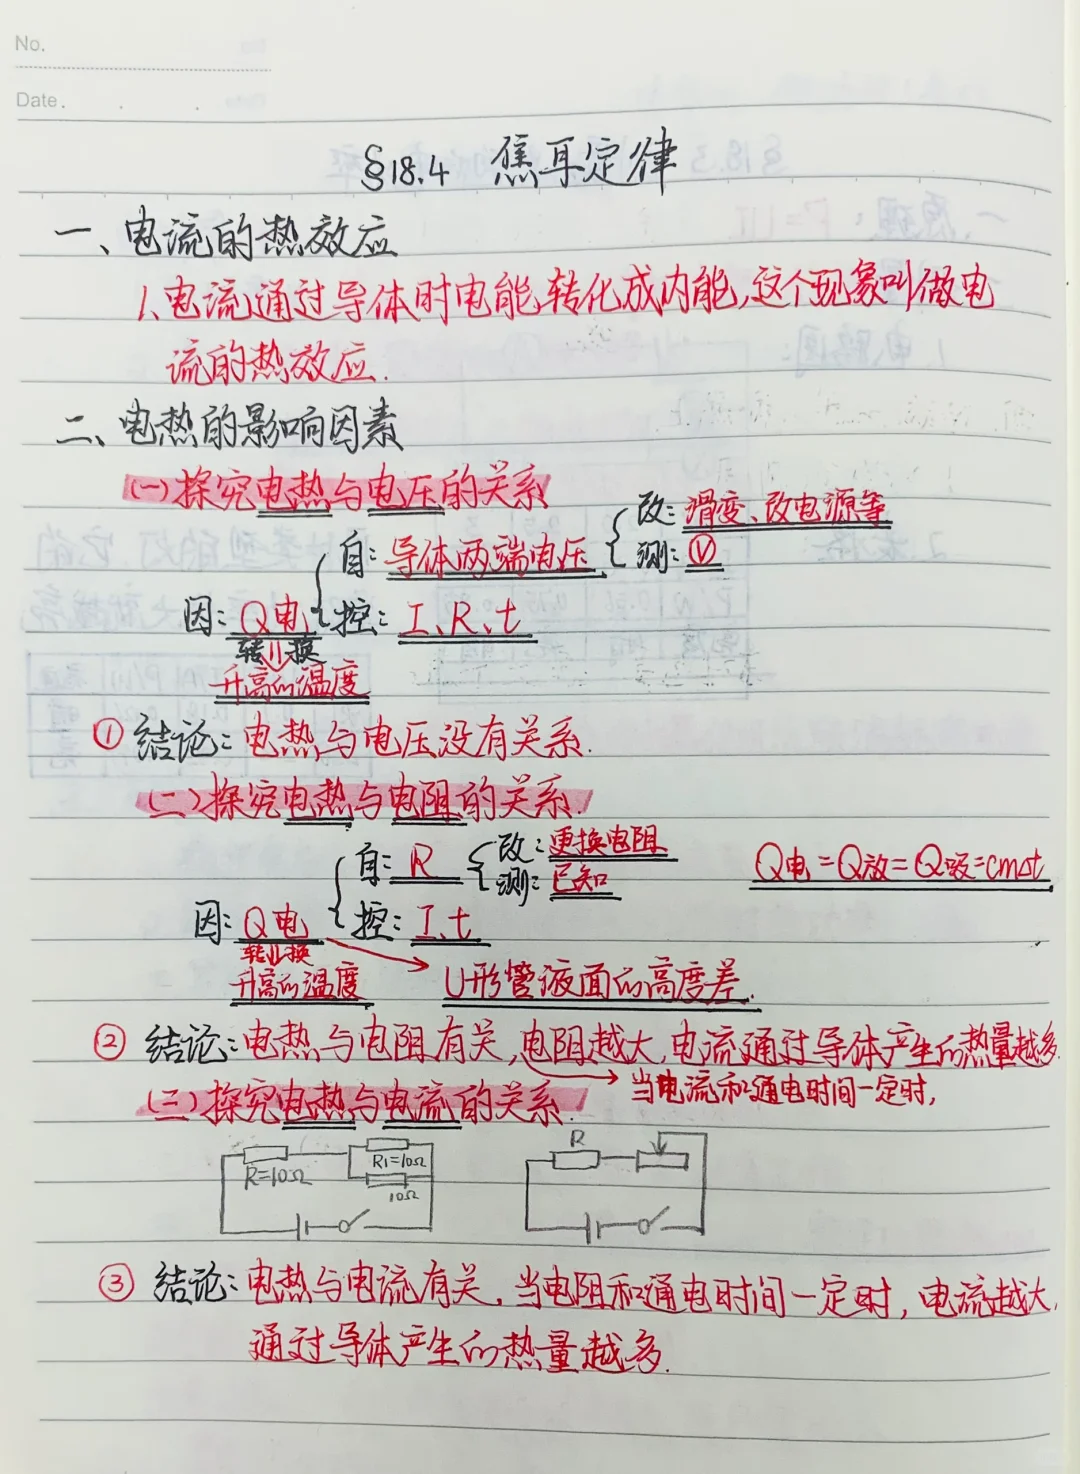 No.
Date.
§18.4 焦耳定律
一、电流的热效应
1、电流通过导体时电能转化成内能,这个现象叫做电
流的热效应.
二、电热的影响因素
(一)探究电热与电压的关系
改:滑变、改电源等
自:导体两端电压
测:Ⓥ
因:Q电
控:I、R、t
转换
升高的温度
①结论:电热与电压没有关系.
(二)探究电热与电阻的关系.
改:更换电阻
自:R
测:已知
Q电=Q放=Q吸=cm△t
因:Q电
控:I、t
转换
升高的温度
U形管液面的高度差.
②结论:电热与电阻有关,电阻越大,电流通过导体产生的热量越多.
当电流和通电时间一定时,
(三)探究电热与电流的关系.
R=10Ω
R1=10Ω
10Ω
R
③结论:电热与电流有关,当电阻和通电时间一定时,电流越大,
通过导体产生的热量越多.